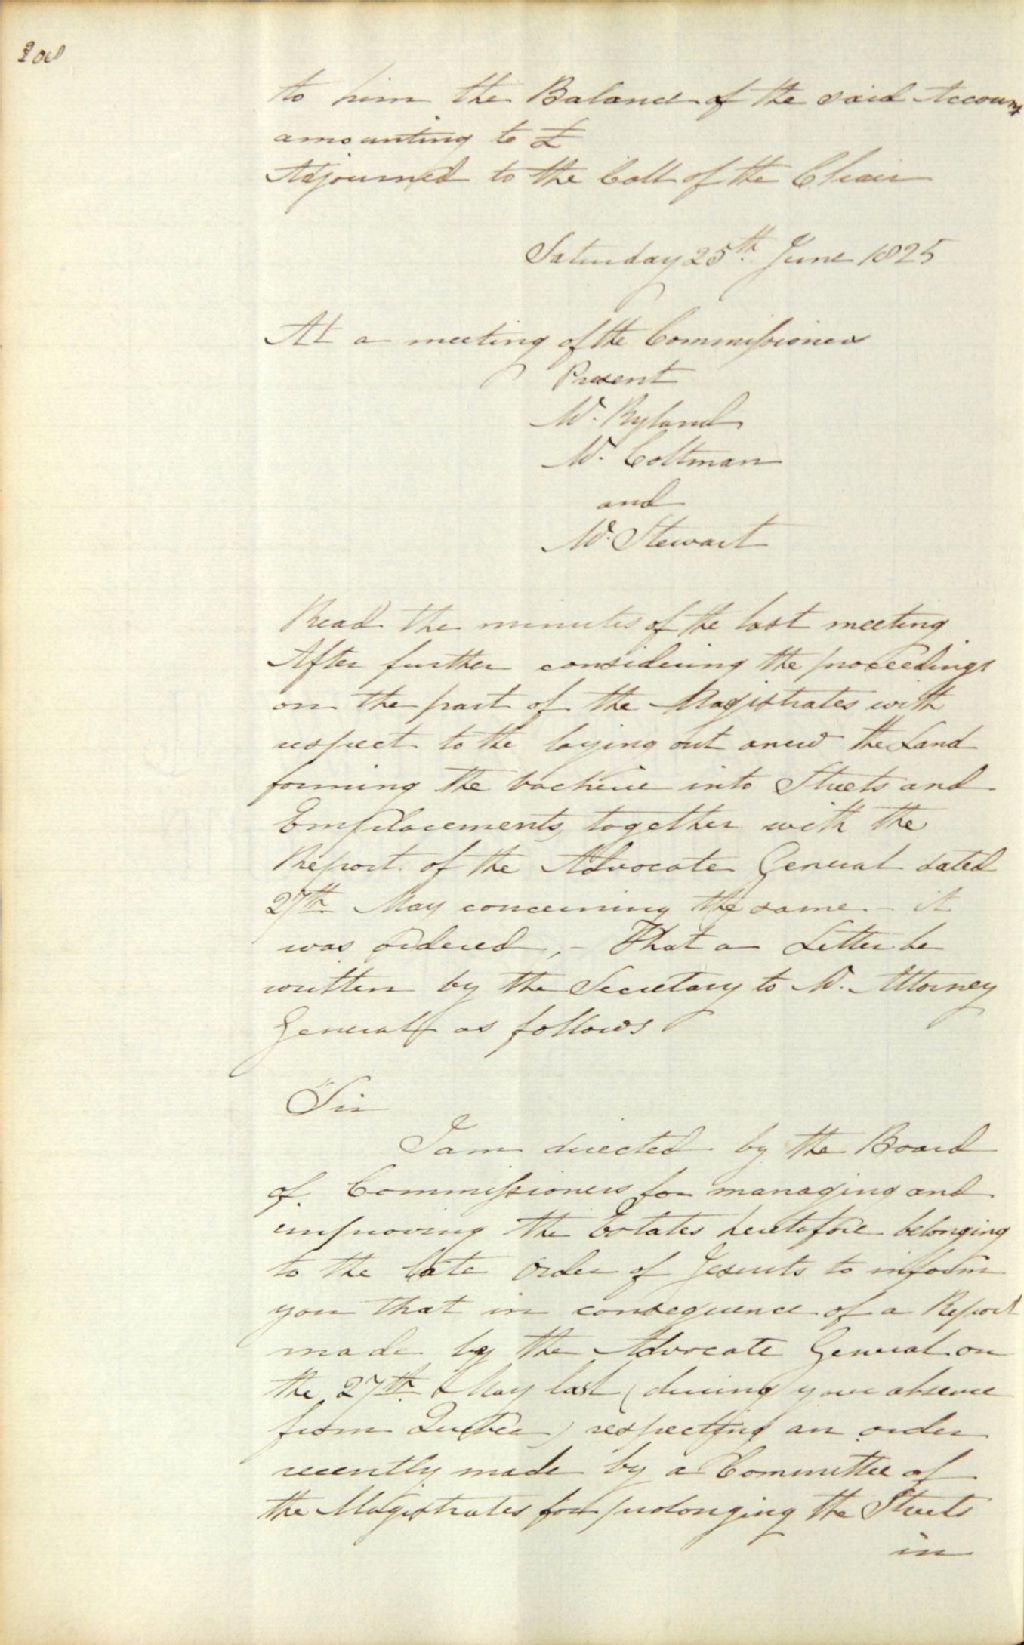 to him the Balance of the said Account
amounting to £
Adjourned to the Call of the Chair
Saturday 25th June 1825
At a meeting of the Commissioners
Present
Mr. Ryland
Mr. Coltman
and
Mr. Stewart
Read the minutes of the last meeting
After further considering the proceedings
on the part of the Magistrates with
respect to the laying out anew the Land
forming the Vacherie into Streets and
Emplacements, together with the
Report of the Advocate General dated
27th May concerning the same - it
was ordered, - That a Letter be
written by the Secretary to Mr. Attorney
General as follows
"Sir
I am directed by the Board
of Commissioners for managing and
improving the Estates heretofore belonging
to the late Order of Jesuits to inform
you that in consequence of a Report
made by the Advocate General on
the 27th May last (during your absence
from Quebec) respecting an order
recently made by a Committee of
the Magistrates for prolonging the Streets
in